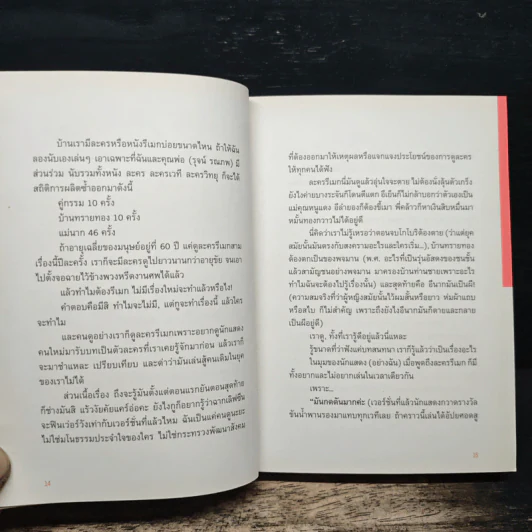 บ้านเรามีละครหรือหนังรีเมกบ่อยขนาดไหน ถ้าให้ฉัน
ลองนับเองเล่นๆ เอาเฉพาะที่ฉันและคุณพ่อ (รุจน์ รณภพ) มี
ส่วนร่วม นับรวมทั้งหนัง ละคร ละครเวที ละครวิทยุ ก็จะได้
สถิติการผลิตซ้ำออกมาดังนี้
คู่กรรม 10 ครั้ง
บ้านทรายทอง 10 ครั้ง
แม่นาก 46 ครั้ง
ถ้าอายุเฉลี่ยของมนุษย์อยู่ที่ 60 ปี แค่ดูละครรีเมกสาม
เรื่องนี้ปีละครั้ง เราก็จะมีละครดูไปยาวนานกว่าอายุขัย จนเอา
ไปตั้งจอฉายไว้ข้างพวงหรีดงานศพได้แล้ว
แล้วทำไมต้องรีเมก ไม่มีเรื่องใหม่จะทำแล้วหรือไง!
คำตอบคือมีสิ ทำไมจะไม่มี แต่กูจะทำเรื่องนี้ แล้วใคร
จะทำไม
และคนดูอย่างเราก็ดูละครรีเมกเพราะอยากดูนักแสดง
คนใหม่มารับบทเป็นตัวละครที่เราเคยรู้จักมาก่อน แล้วเราก็
จะมาชำแหละ เปรียบเทียบ และด่าว่ามันเล่นสู้คนเดิมในยุค
ของเราไม่ได้
ส่วนเนื้อเรื่อง ถึงจะรู้มันตั้งแต่ตอนแรกยันตอนสุดท้าย
ก็ช่างมันสิ แร้วงัยคัยแคร์อ่อคะ ยังไงกูก็อยากรู้ว่าฉากเลิฟซีน
จะฟินเวอร์วังเท่ากับเวอร์ชั่นที่แล้วไหม ฉันเป็นแค่คนดูนะยะ
ไม่ใช่มโนธรรมประจำใจของใคร ไม่ใช่กระทรวงพัฒนาสังคม
14
ที่ต้องออกมาให้เหตุผลหรือแจกแจงประโยชน์ของการดูละคร
ให้ทุกคนได้ฟัง
ละครรีเมกนี่มันดูแล้วอุ่นใจจะตาย ไม่ต้องนั่งลุ้นตัวเกร็ง
ยังไงค่ายบางระจันก็โดนตีแตก อีเย็นก็ไม่กล้าบอกว่าตัวเองเป็น
แม่คุณหนูแดง อีลำยองก็ต้องขี้เมา พี่คล้าวก็หาเงินสิบหมื่นมา
หมั้นทองกวาวไม่ได้อยู่ดี
นี่คิดว่าเราไม่รู้เหรอว่าตอนจบโกโบริต้องตาย (ว่าแต่ยุค
สมัยนั้นมันตรงกับสงครามอะไรและใครเริ่ม...), บ้านทรายทอง
ต้องตกเป็นของพจมาน (พ.ศ. อะไรที่เป็นรุ่นอัสดงของชนชั้น
แล้วสามัญชนอย่างพจมาน มาครองบ้านท่านชายเพราะอะไร
ทำไมฉันจะต้องไปรู้เรื่องนั้น) และสุดท้ายคือ อีนากมันเป็นผี!
(ความสมจริงที่ว่าผู้หญิงสมัยนั้นไว้ผมสั้นหรือยาว ห่มผ้าแถบ
หรือสไบ ก็ไม่สำคัญ เพราะถึงยังไงอีนากมันก็ตายและกลาย
เป็นผีอยู่ดี)
เราดู, ทั้งที่เรารู้ดีอยู่แล้วนี่แหละ
รู้ขนาดที่ว่าฟังแค่บทสนทนา เราก็รู้แล้วว่าเป็นเรื่องอะไร
ในมุมของนักแสดง (อย่างฉัน) เมื่อพูดถึงละครรีเมก ก็มี
ทั้งอยากและไม่อยากเล่นในเวลาเดียวกัน
เพราะ..
"มันกดดันมากค่ะ (เวอร์ชั่นที่แล้วนักแสดงกวาดรางวัล
ขันน้ำพานรองมาแทบทุกเวทีเลย ถ้าคราวนี้เล่นได้อัปยศอดสู